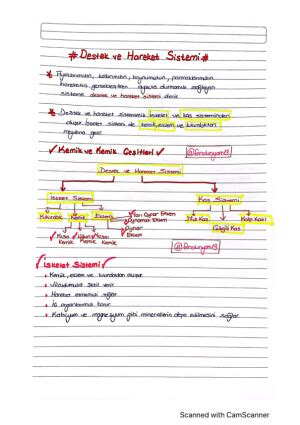 # Destek ve Hareket Sistemi #
hareketini ayakta durmamızı sağlayan
sisteme destek ve hareket sistemi denir
* Destek ve hareket sistemimiz iskelet ve kas sisteminden
oluşur. İskelet sistemi de kemik, eklem ve kıkırdaktan
meydana gelir
✓ Kemik ve Kemik Çeşitleri ✓
Destek ve Hareket Sistemi
İskelet Sistemi
Kas Sistemi
Kıkırdak Kemik Eklem
Yarı Oynar Eklem
Oynamaz Eklem
Oynar Eklem
Kısa Kemik
Uzun Kemik
Yassı Kemik
Düz Kas
Çizgili Kas
Kalp Kası
✓ İskelet Sistemi ✓
• Kemik, eklem ve kıkırdaktan oluşur
• Vücudumuza şekil verir
• Hareket etmemizi sağlar
• İç organlarımızı korur
• Kalsiyum ve magnezyum gibi minerallerin depo edilmesini sağlar
Scanned with CamScanner